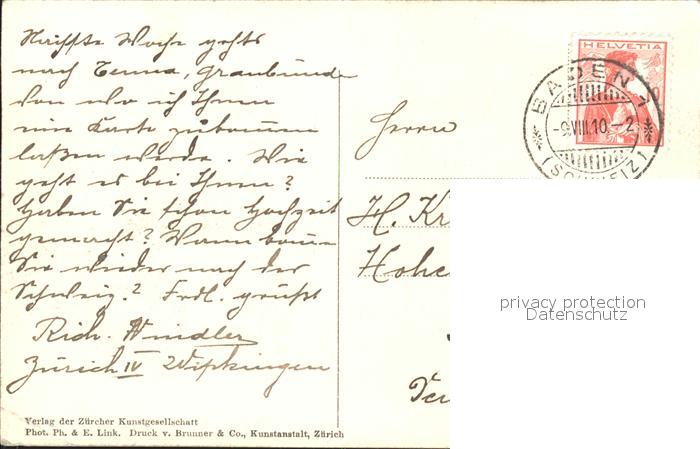 Nächste Woche gehts
nach Tenna, Graubünden
von wo ich Ihnen
eine Karte zukommen
lassen werde. Wie
geht es bei Ihnen?
Haben Sie schon Hochzeit
gemacht? Wann kommen
Sie wieder nach der
Schweiz? Frdl. grüßt
Rich. Windler
Zürich IV Wipkingen
Verlag der Zürcher Kunstgesellschaft
Phot. Ph. & E. Link. Druck v. Brunner & Co., Kunstanstalt, Zürich
HELVETIA
BADEN 1
-9.VIII.10.-2
(SCHWEIZ)
Herrn
H. Kr
Hohe
privacy protection
Datenschutz